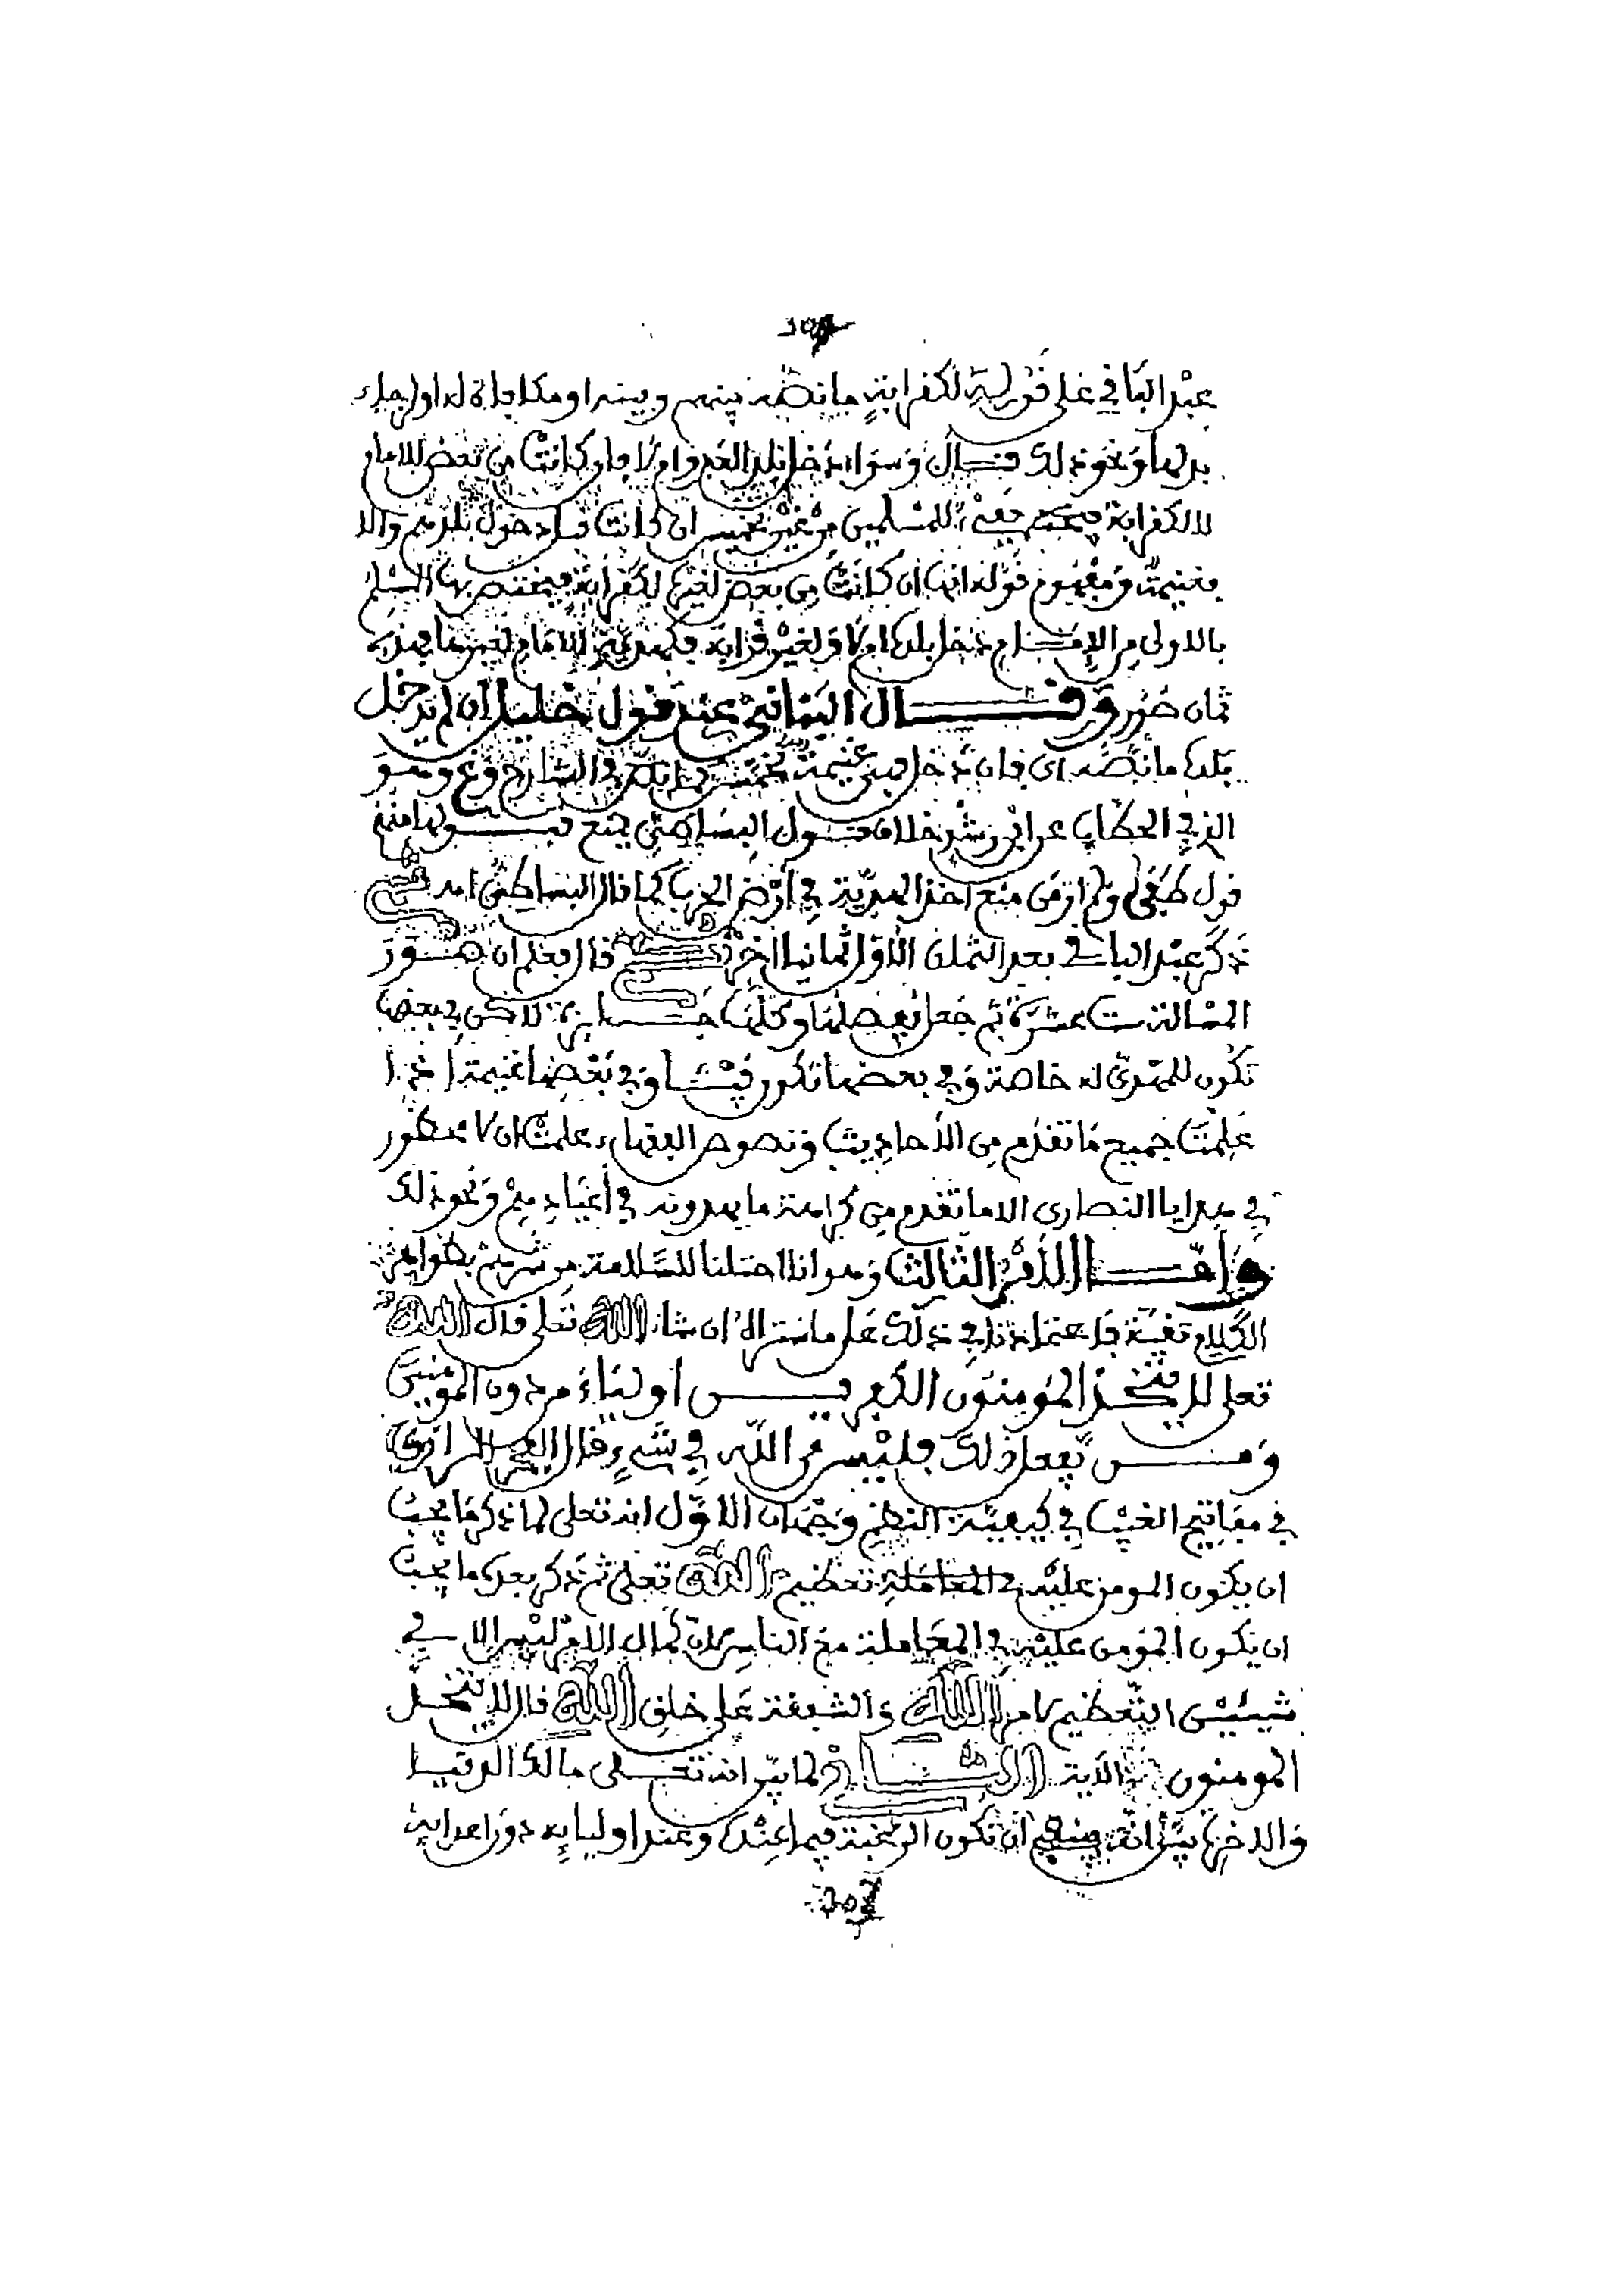 عبد الباقي على قوله كقرابة ما نصه بينهم وبينه او مكافاة له او لرجاء
بدلها ونحو ذلك قال وسواء دخل بلد العدو ام لا فان كانت من بعض للامام
لا لكقرابة فيئ للمسلمين من غير تخميس ان كانت قبل دخول بلدهم والا
فغنيمة ومفهوم قوله انها ان كانت من بعض لغيره لكقرابة فيختص بها المسلم
بالاولى من الامام دخل بلده ام لا ولغير قرابة فكهدية للامام لغير ما هذه
ثمان صور وقال البناني عند قول خليل ان لم يدخل
بلده ما نصه اى فان دخل فهي غنيمة تخمس في الشارح وغ وهو
الذي في الحطاب عن ابن رشد خلاف قول البساطي يمنع قبولها منهم
قول طفى ولم ار من منع اخذ الهدية في أرض الحرب كما قال البساطي اهـ
ذكر عبد الباقي بعد الثمان الاول ثمانيا اخر قال فعلم ان صور
المسالة ست عشرة ثم جعل يفصلها وكلها جايزة لاكن في بعضها
تكون للمهدى له خاصة وفي بعضها تكون فيئا وفي بعضها غنيمة اذا
علمت جميع ما تقدم من الأحاديث ونصوص الفقهاء علمت ان لا محظور
في هدايا النصارى الا ما تقدم من كراهة ما يهدونه في أعيادهم ونحو ذلك
واما الأمر الثالث وهو اننا احتلنا للسلامة من شرهم بظواهر
الكلام تقية فاعتمادنا في ذلك على ما ستراه ان شاء الله تعلى قال الله
تعلى لا يتخذ المومنون الكفرين اولياء من دون المومنين
ومن يفعل ذلك فليس من الله في شيء قال الفخر الرازي
في مفاتيح الغيب في كيفية النظم وجهان الاول انه تعلى لما ذكر ما يجب
ان يكون المومن عليه في المعاملة تعظيم الله تعلى ثم ذكر بعده ما يجب
ان يكون المومن عليه في المعاملة مع الناس لان كمال الامر ليس الا في
شيئين التعظيم لامر الله والشفقة على خلق الله قال لا يتخذ
المومنون الآية الثاني لما بين انه تعلى مالك الدنيا
والاخرة بين انه ينبغي ان تكون الرغبة فيما عنده وعند اوليايه دون اعدايه